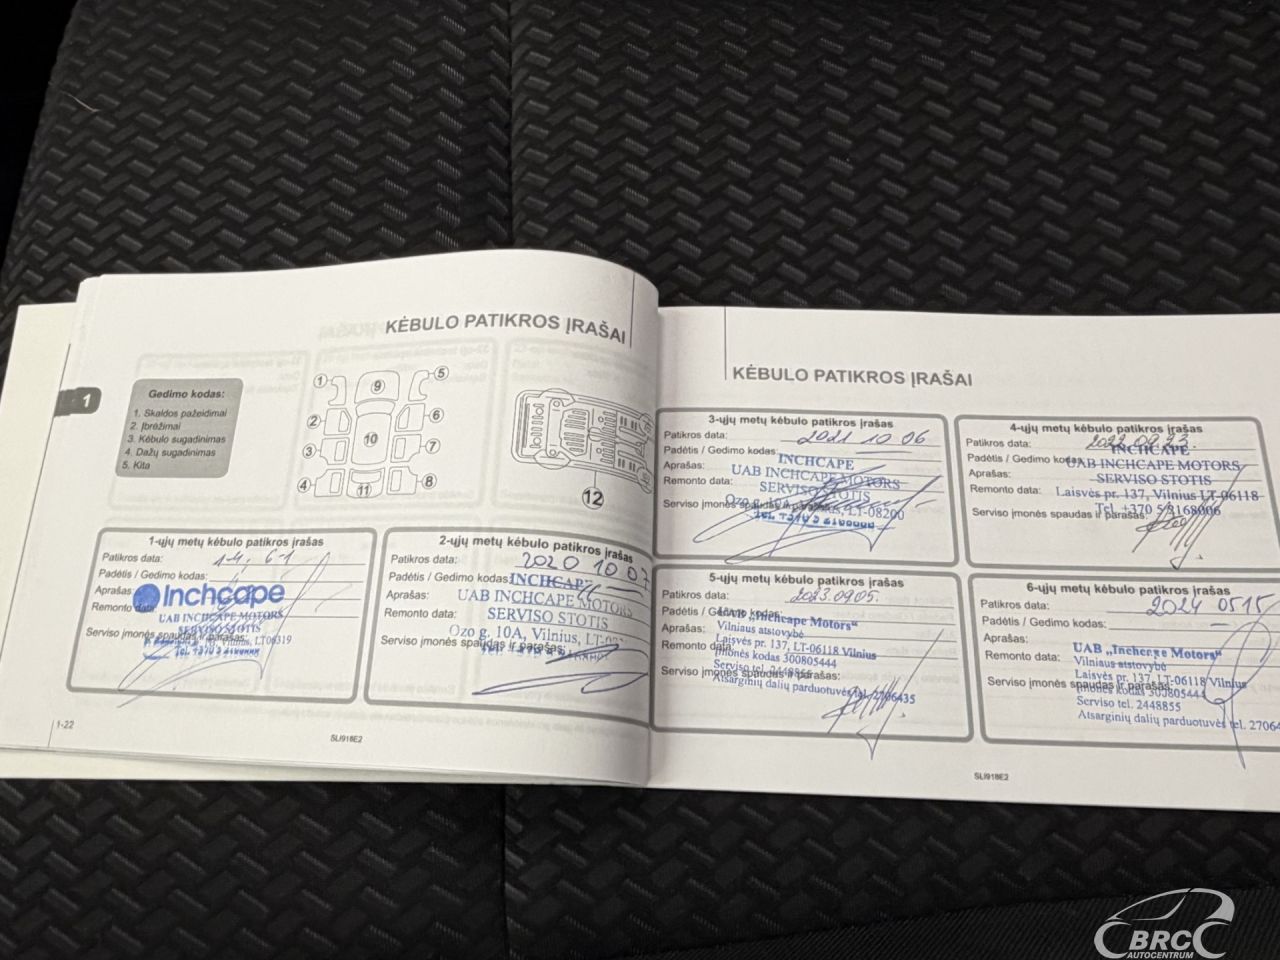 KĖBULO PATIKROS ĮRAŠAI
1
Gedimo kodas:
1. Skaldos pažeidimai
2. Įbrėžimai
3. Kėbulo sugadinimas
4. Dažų sugadinimas
5. Kita
1 2 3 4 5 6 7 8 9 10 11
12
1-ųjų metų kėbulo patikros įrašas
Patikros data:
Padėtis / Gedimo kodas:
Aprašas:
Inchcape
Remonto data:
UAB INCHCAPE MOTORS
SERVISO STOTIS
Serviso įmonės spaudas ir parašas:
Vilnius, LT06319
2-ųjų metų kėbulo patikros įrašas
Patikros data: 2020 10 07
Padėtis / Gedimo kodas:
INCHCAPE
Aprašas:
UAB INCHCAPE MOTORS
Remonto data:
SERVISO STOTIS
Ozo g. 10A, Vilnius,
Serviso įmonės spaudas ir parašas:
1-22
SLI918E2
KĖBULO PATIKROS ĮRAŠAI
3-ųjų metų kėbulo patikros įrašas
Patikros data: 2021 10 06
Padėtis / Gedimo kodas:
INCHCAPE
Aprašas:
UAB INCHCAPE MOTORS
Remonto data:
SERVISO STOTIS
Ozo g. 10A, Vilnius, LT-08200
Serviso įmonės spaudas ir parašas:
4-ųjų metų kėbulo patikros įrašas
Patikros data: 2022.09.23.
INCHCAPE
Padėtis / Gedimo kodas:
UAB INCHCAPE MOTORS
Aprašas:
SERVISO STOTIS
Remonto data:
Laisvės pr. 137, Vilnius LT-06118
Tel. +370 5 2168006
Serviso įmonės spaudas ir parašas:
5-ųjų metų kėbulo patikros įrašas
Patikros data: 2023.09.05.
Padėtis / Gedimo kodas:
UAB „Inchcape Motors“
Aprašas:
Vilniaus atstovybė
Laisvės pr. 137, LT-06118 Vilnius
Remonto data:
Įmonės kodas 300805444
Serviso tel. 2448855
Serviso įmonės spaudas ir parašas:
Atsarginių dalių parduotuvės tel. 2706435
6-ųjų metų kėbulo patikros įrašas
Patikros data: 2024 05 15
Padėtis / Gedimo kodas:
Aprašas:
UAB „Inchcape Motors“
Remonto data:
Vilniaus atstovybė
Laisvės pr. 137, LT-06118 Vilnius
Serviso įmonės spaudas ir parašas:
Įmonės kodas 300805444
Serviso tel. 2448855
Atsarginių dalių parduotuvės tel.
SLI918E2
BRC
AUTOCENTRUM